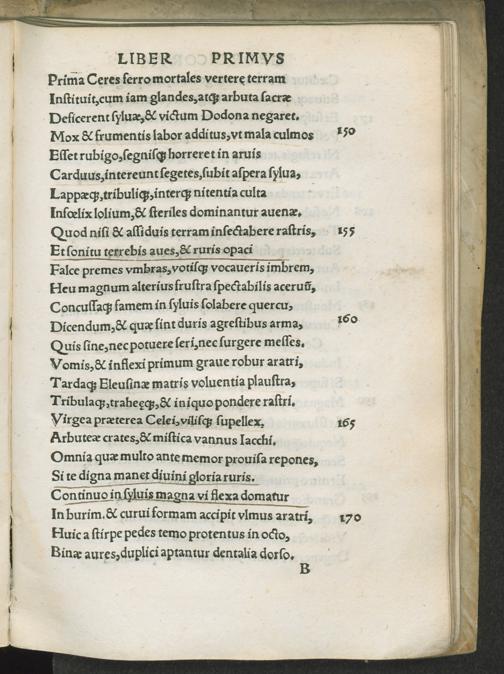 LIBER PRIMVS
Prima Ceres ferro mortales vertere terram
Instituit,cum iam glandes,atqꝫ arbuta sacræ
Deficerent syluæ,& victum Dodona negaret.
Mox & frumentis labor additus,vt mala culmos 150
Esset rubigo,segnisqꝫ horreret in aruis
Carduus,intereunt segetes,subit aspera sylua,
Lappæqꝫ,tribuliqꝫ,interqꝫ nitentia culta
Infœlix lolium,& steriles dominantur auenæ.
Quod nisi & assiduis terram insectabere rastris, 155
Et sonitu terrebis aues,& ruris opaci
Falce premes vmbras,votisqꝫ vocaueris imbrem,
Heu magnum alterius frustra spectabilis aceruũ,
Concussaqꝫ famem in syluis solabere quercu,
Dicendum,& quæ sint duris agrestibus arma, 160
Quis sine,nec potuere seri,nec surgere messes.
Vomis,& inflexi primum graue robur aratri,
Tardaqꝫ Eleusinæ matris voluentia plaustra,
Tribulaqꝫ,traheęqꝫ,& iniquo pondere rastri.
Virgea præterea Celei,vilisqꝫ supellex, 165
Arbuteæ crates,& mistica vannus Iacchi.
Omnia quæ multo ante memor prouisa repones,
Si te digna manet diuini gloria ruris.
Continuo in syluis magna vi flexa domatur
In burim.& curui formam accipit vlmus aratri, 170
Huic a stirpe pedes temo protentus in octo,
Binæ aures,duplici aptantur dentalia dorso.
B